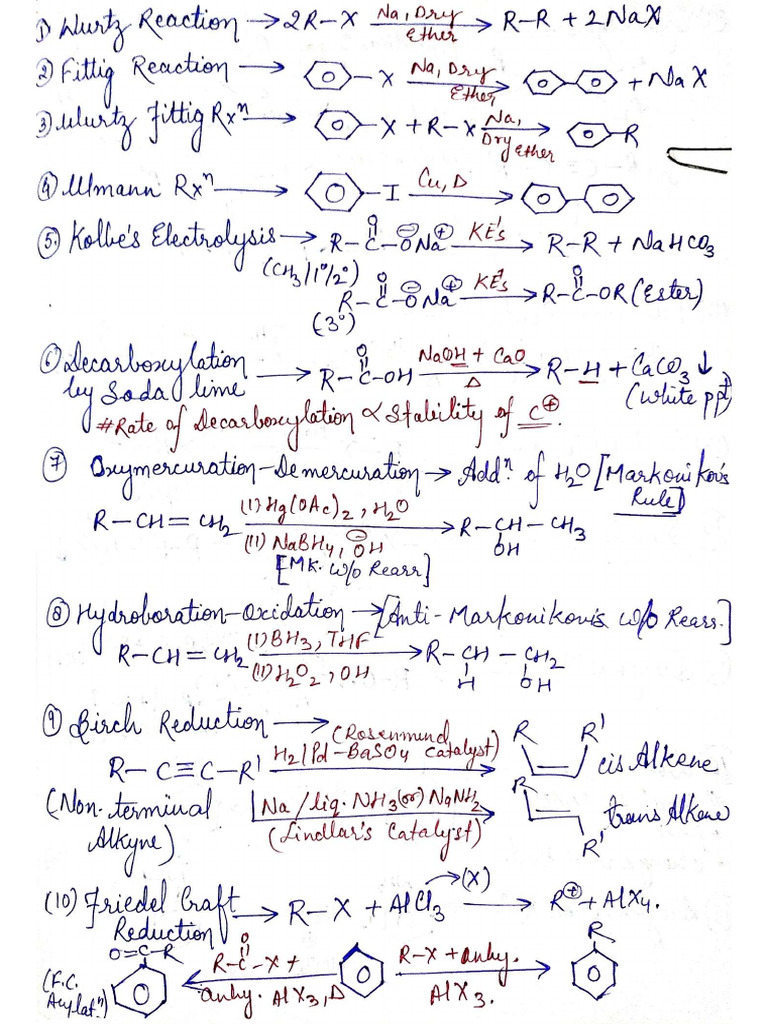 1) Wurtz Reaction → 2R–X Na, Dry Ether → R–R + 2NaX
2) Fittig Reaction → –X Na, Dry Ether → + NaX
3) Wurtz Fittig Rxⁿ → –X + R–X Na, Dry Ether → –R
4) Ulmann Rxⁿ → –I Cu, Δ →
5. Kolbe's Electrolysis → R–C–O⊖Na⊕ KE's → R–R + NaHCO3
O
(CH3/1°/2°)
R–C–O⊖Na⊕ KE's → R–C–OR (Ester)
O O
(3°)
6) Decarboxylation by Soda lime → R–C–OH NaOH + CaO Δ → R–H + CaCO3 ↓ (White ppt)
O
#Rate of Decarboxylation ∝ Stability of C⊕.
7 Oxymercuration–Demercuration → Addⁿ. of H2O [Markonikov's Rule]
R–CH=CH2 (i) Hg(OAc)2, H2O (ii) NaBH4, ⊖OH → R–CH–CH3
OH
[MK. w/o Rearr]
8 Hydroboration–Oxidation → [Anti-Markonikov's w/o Rearr.]
R–CH=CH2 (i) BH3, THF (ii) H2O2, OH → R–CH–CH2
H OH
9 Birch Reduction →
R–C≡C–R' (Rosenmund H2/Pd–BaSO4 Catalyst) → R R' cis Alkene
(Non-terminal Alkyne) Na/liq. NH3 (or) NaNH2 (Lindlar's Catalyst) → R R' trans Alkene
(10) Friedel Craft Reduction → R–X + AlCl3 → (X) → R⊕ + AlX4.
O=C–R R–C–X + anhy. AlX3, Δ R–X + anhy. AlX3. R
O
(F.C. Acylatⁿ)